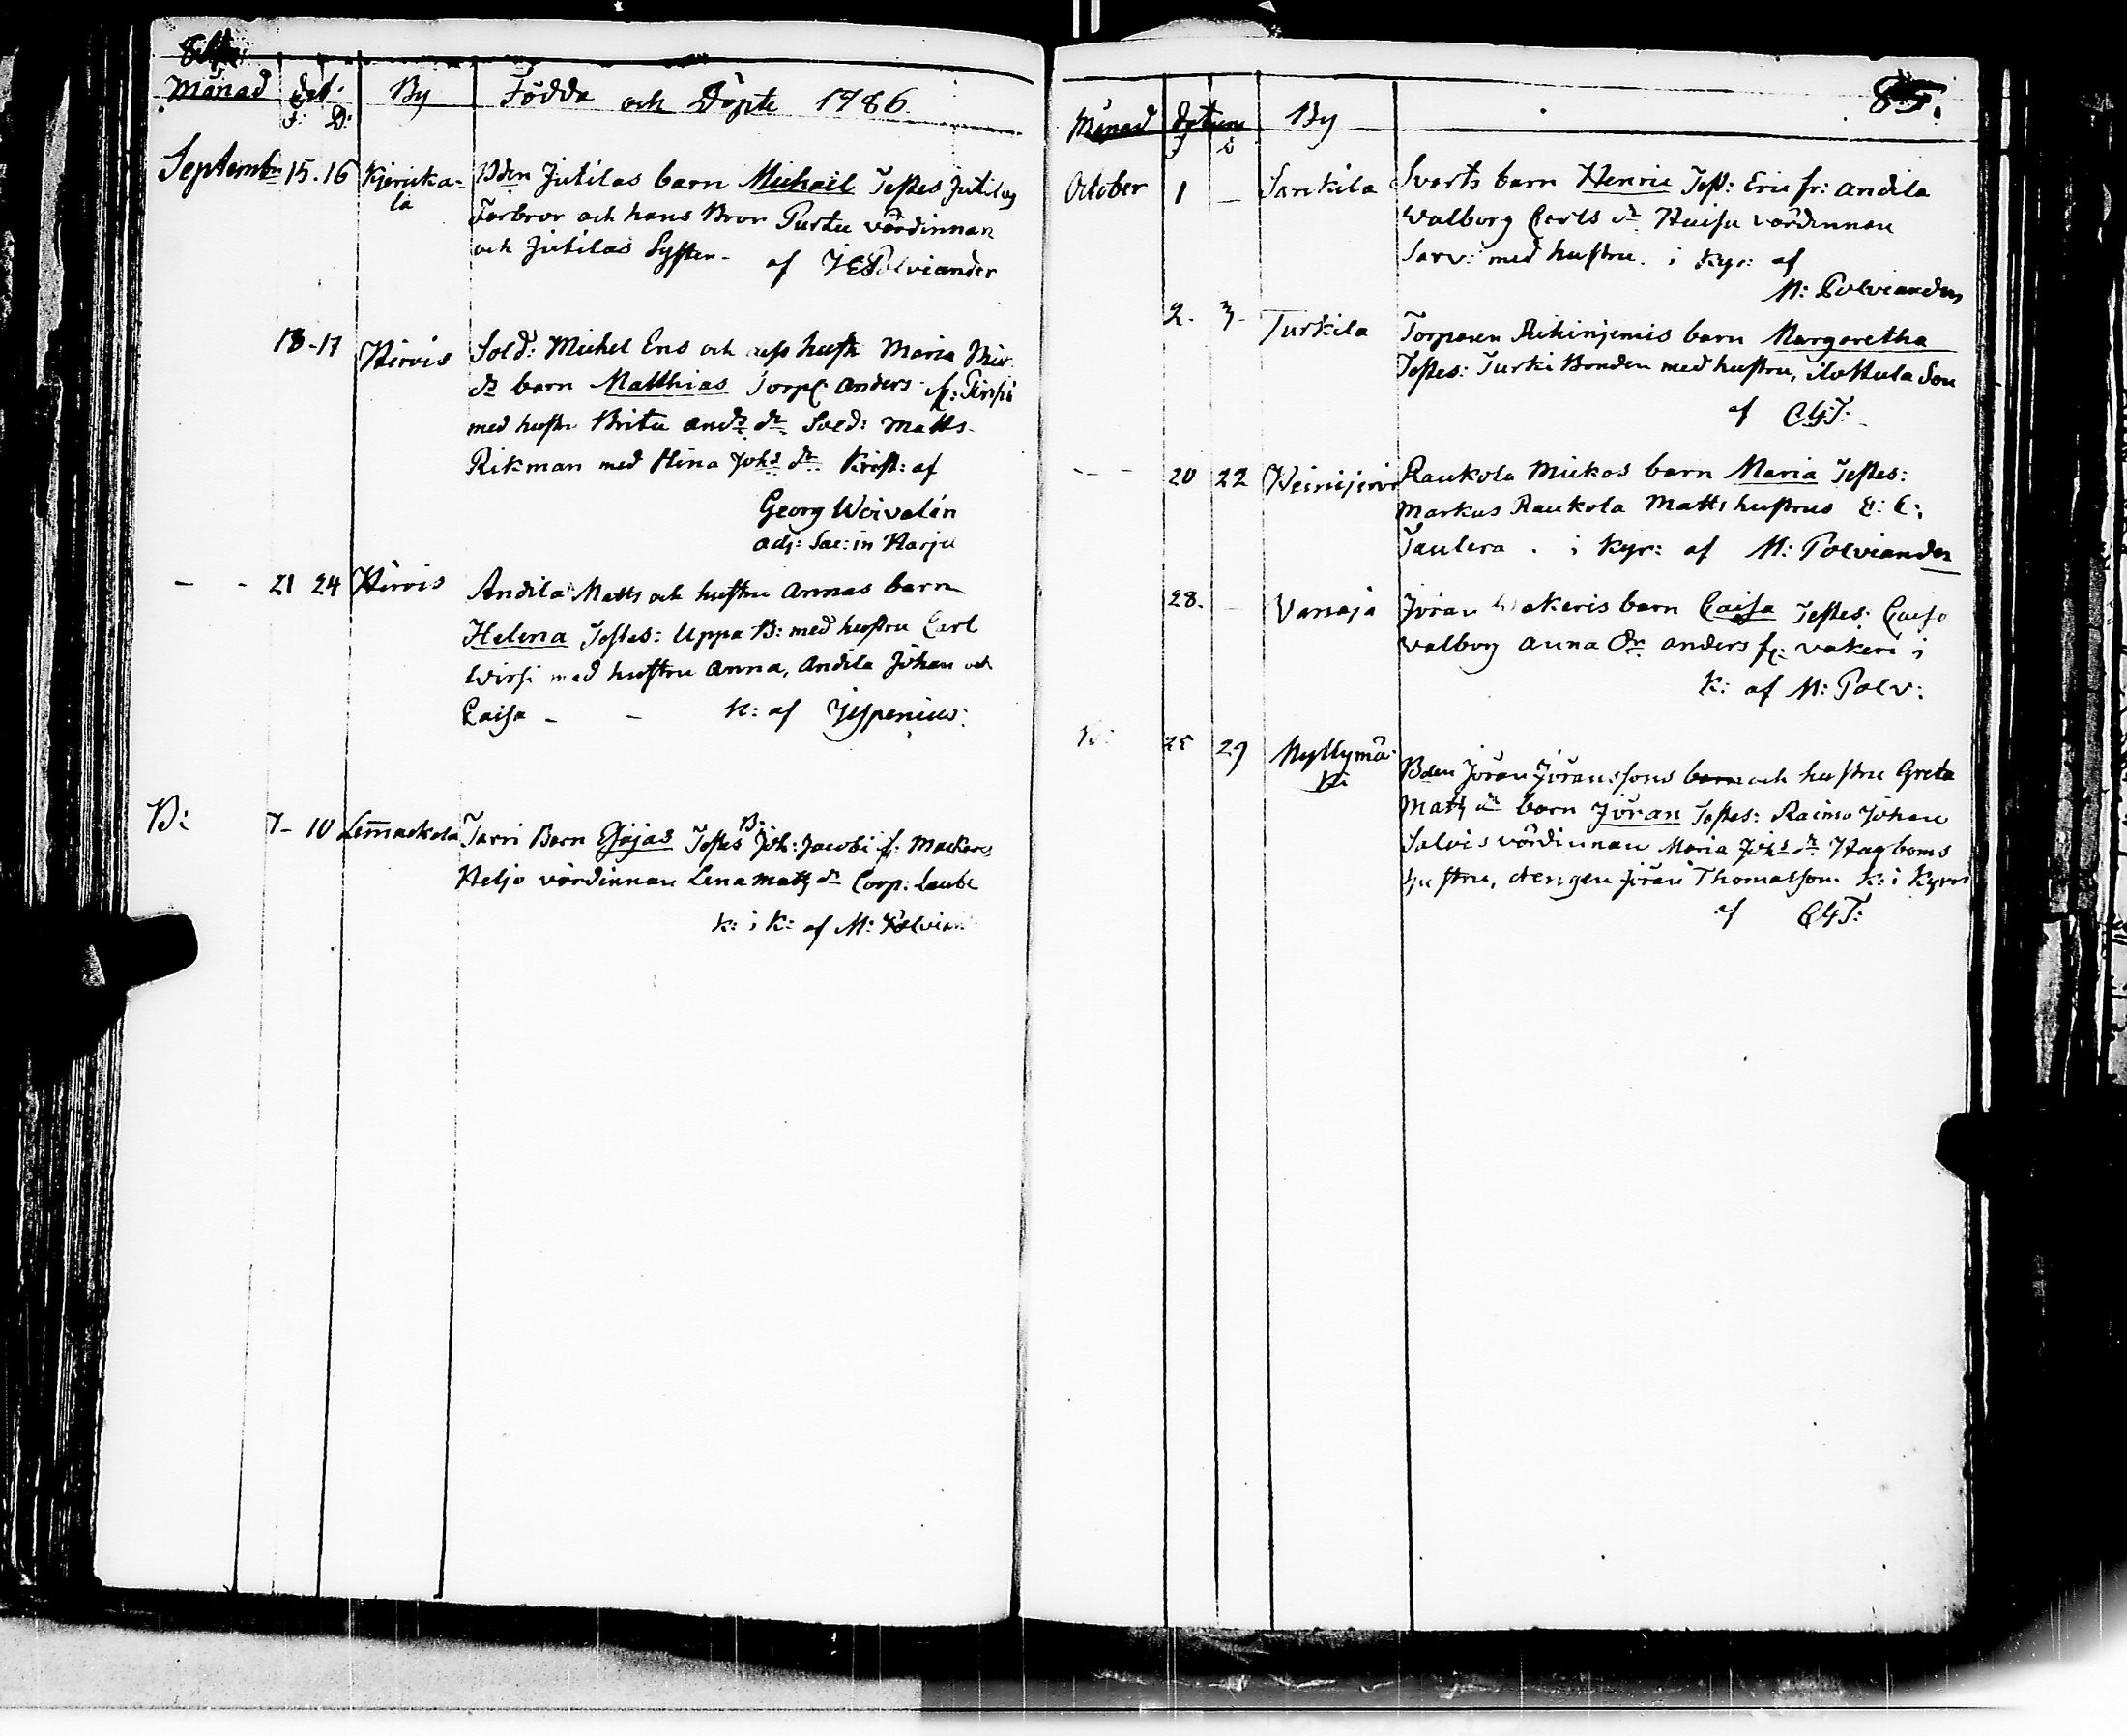 Månad dat. By Födda och Döpte 1786.
F: D:
September 15. 16 Kjericka= Bden Jutilas barn Michaël Testes Jutilas
la Farbror och hans Bror Purtu värdinnan
och Jutilas Syster - af JEPolviander
18-17 Hirvis Sold: Michel Ens och dess hustr Maria Mic
dr barn Matthias Torp: Anders
med hustr Brita Andr dr Sold: Matts
Rikman med Stina Johs dr Krist: af
Georg Woivalén
adj: Sac: in Karju
- - 21 24 Hirvis Andila Matts och hustru Annas barn
Helena Testes: Uppa B: med hustru Carl
Wirsi med hustru Anna, Andila Johan och
Caisa - - K: af Jespenius:
B: 7- 10 Lemackola Tarri Barn Esajas Testes B. Joh: Jacobi f: Mackares
Heljo värdinnan Lena Matts dr Corp: Laube
K: i K: af M: Polvian
85.
Månad datum By
October 1 - Sarkila Svarts barn Henric Test: Eric fr: Andila
Walborg Carls dr Huisu värdinnan
Sarv: med hustru. i Kyr: af
M: Polviander
2. 3- Turkila Torparen Rihinjemis barn Margaretha
Testes: Turki Bonden med hustru, Son
af CGT:
- - 20 22 Weinijervi Raukola Mickos barn Maria Testes:
Markus Raukola Matts hustrus E: C:
Taulera . i Kyr: af M: Polviander
28. - Vanaja Jöran Wakeris barn Caisa Testes: Caisa
Valborg Anna Anders f: vakeri i
K: af M: Polv:
B: 25 29 Myllymä=
ki Bden Jöran Jöranssons barn och hustru Greta
Matts dr barn Jöran Testes: Raimo Johan
Salvis värdinnan Maria Johs dr Hagboms
hustru, drengen Jöran Thomasson K: i Kyrr
af CGT: